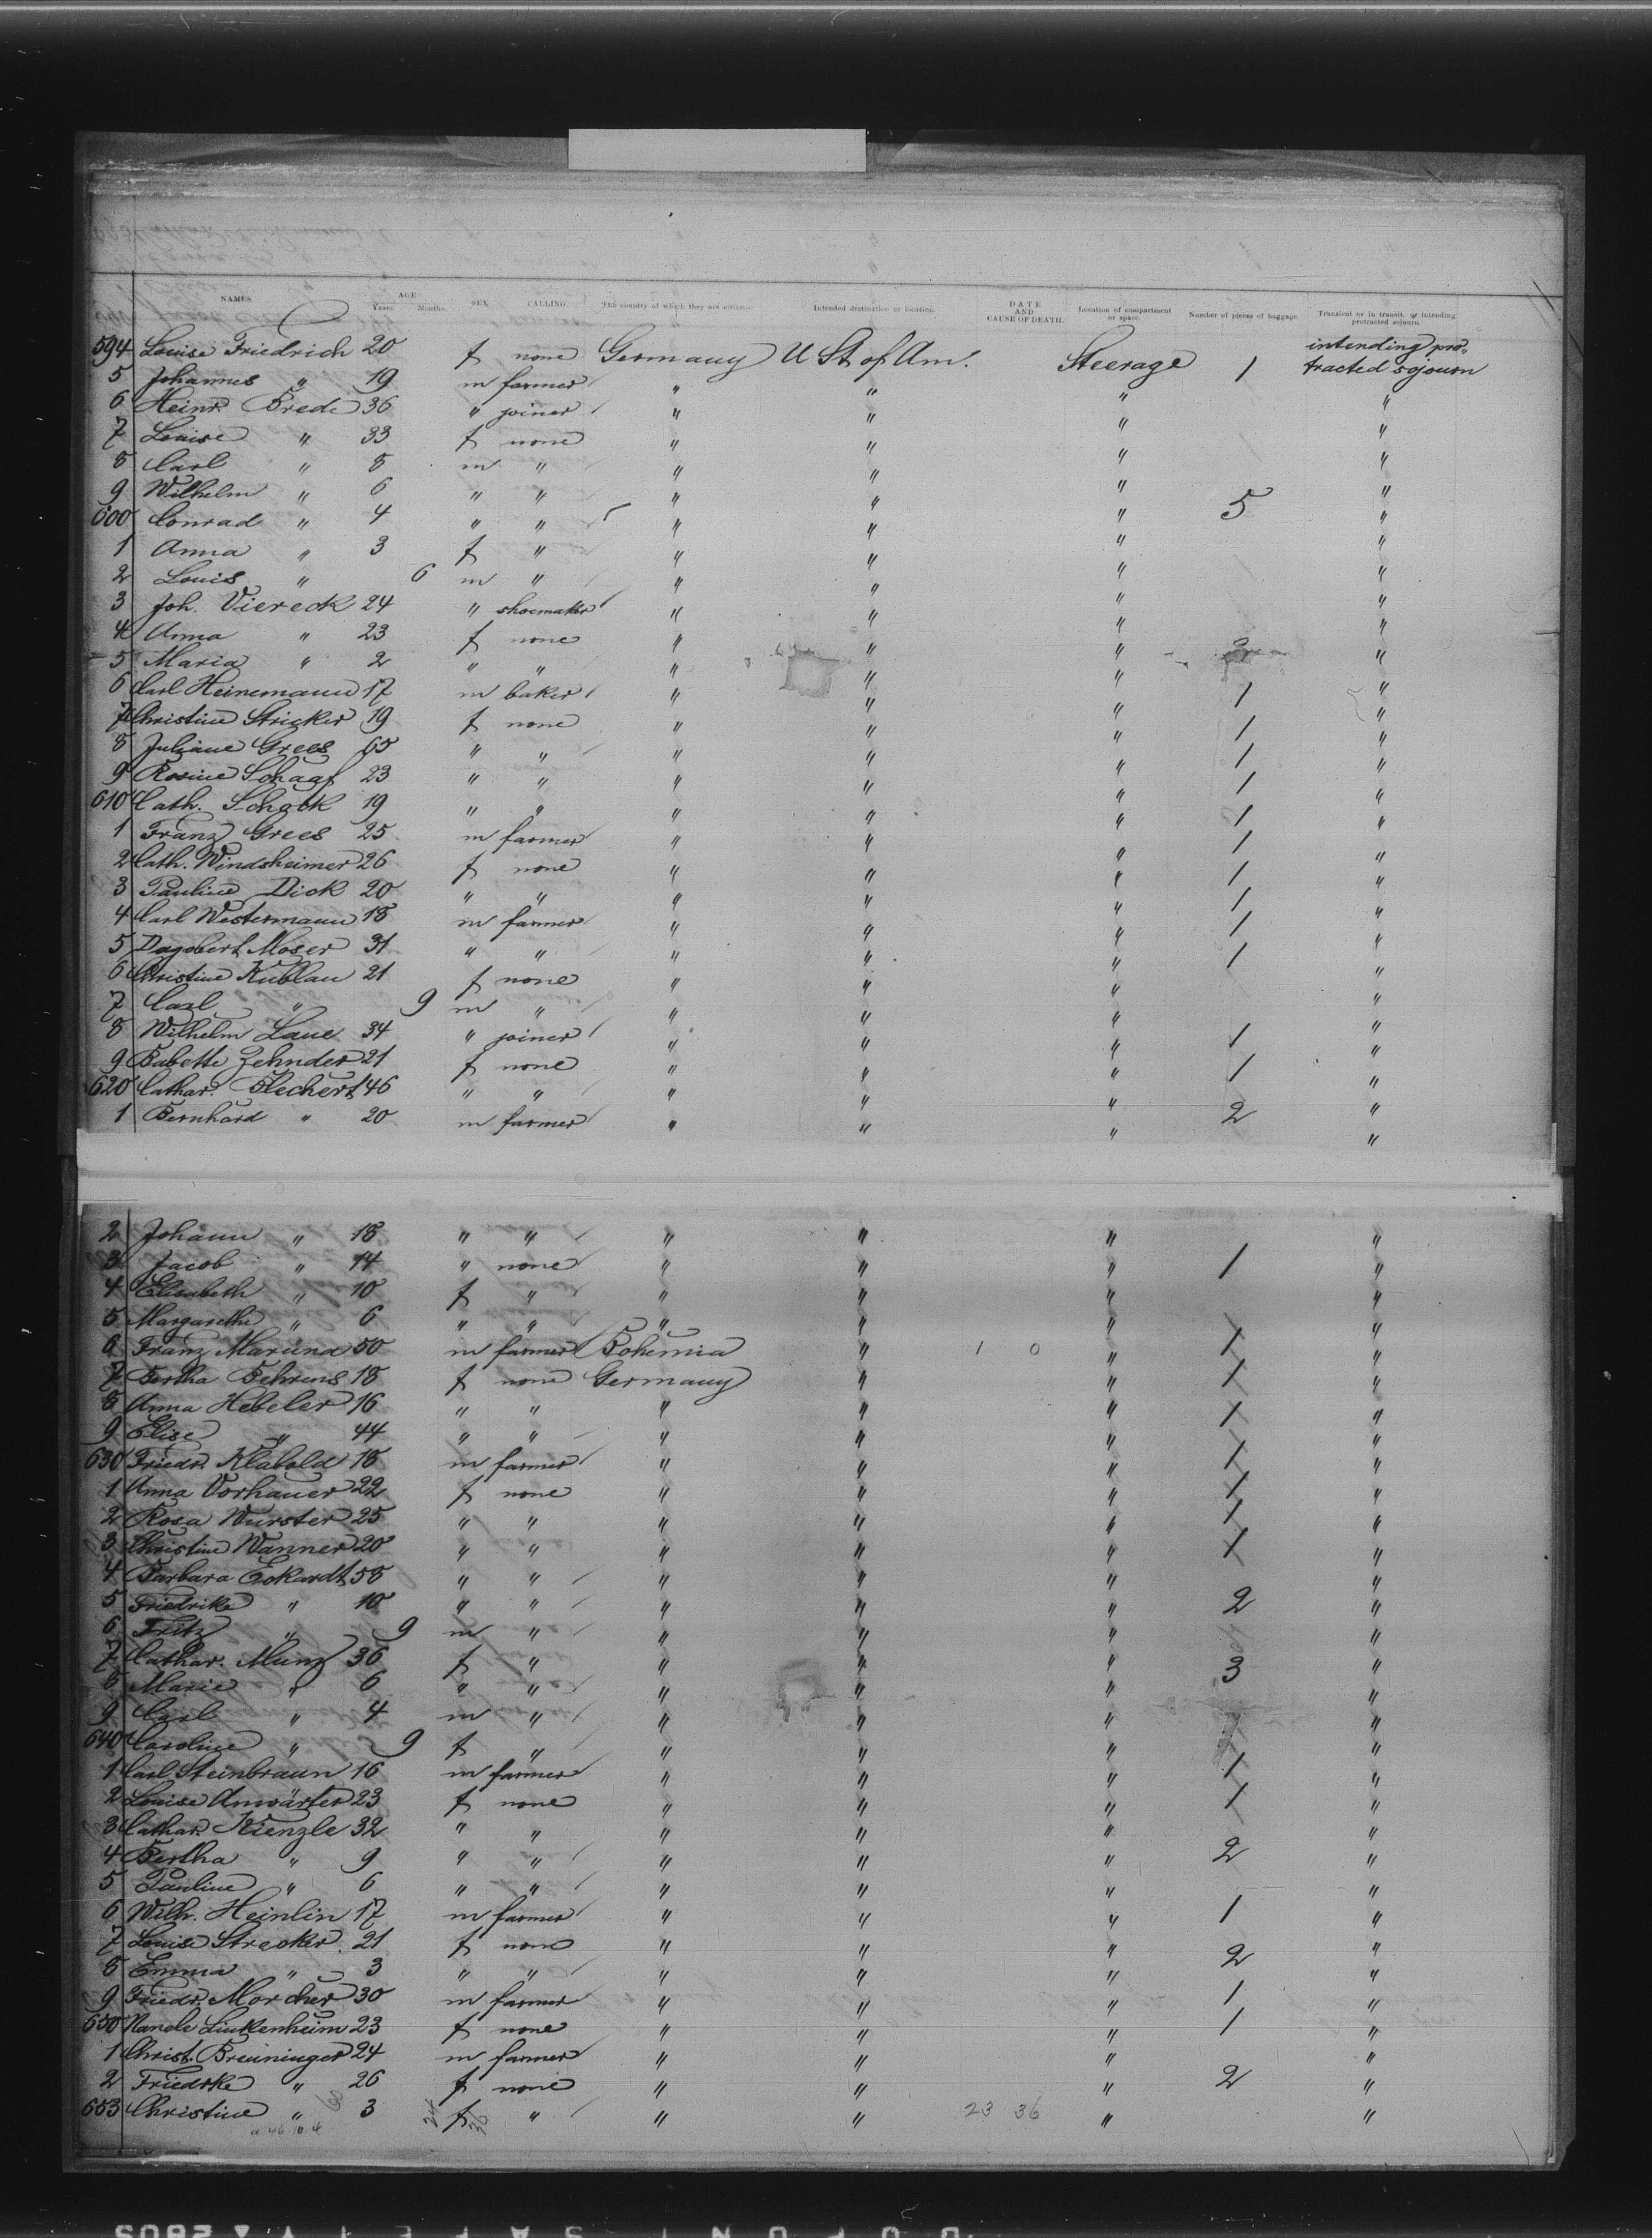 NAMES. AGE Years. Months. SEX. CALLING. The country of which they are citizens. Intended destination or location. DATE AND CAUSE OF DEATH. Location of compartment or space. Number of pieces of baggage. Transient or in transit, or intending protracted sojourn.
594 Louise Friedrich 20 f none Germany U St of Am. Steerage 1 intending pro- tracted sojourn
5 Johannes " 19 m farmer " " " "
6 Heinr. Brede 36 " joiner " " " "
7 Louise " 33 f none " " " "
8 Carl " 8 m " " " " "
9 Wilhelm " 6 " " " " " "
600 Conrad " 4 " " " " " 5 "
1 Anna " 3 f " " " " "
2 Louis " 6 m " " " " "
3 Joh. Viereck 24 " shoemaker " " " "
4 Anna " 23 f none " " " "
5 Maria " 2 " " " " " "
6 Carl Heinemann 17 m baker " " " 1 "
7 Christine Stricker 19 f none " " " 1 "
8 Juliane Grees 65 " " " " " 1 "
9 Rosine Schaaf 23 " " " " " 1 "
610 Cath. Schock 19 " " " " " 1 "
1 Franz Grees 25 m farmer " " " 1 "
2 Cath. Windsheimer 26 f none " " " 1 "
3 Pauline Dick 20 " " " " " 1 "
4 Carl Westermann 18 m farmer " " " 1 "
5 Dagobert Moser 31 " " " " " 1 "
6 Christine Kublau 21 f none " " " "
7 Carl " 9 m " " " " "
8 Wilhelm Laue 34 " joiner " " " 1 "
9 Babette Zehnder 21 f none " " " 1 "
620 Cathar. Blechert 46 " " " " " "
1 Bernhard " 20 m farmer " " " 2 "
2 Johann " 18 " " " " " "
3 Jacob " 14 " none " " " 1 "
4 Elisabeth " 10 f " " " " "
5 Margarethe " 6 " " " " " "
6 Franz Maruna 50 m farmer Bohemia " 1 0 " 1 "
7 Bertha Behrens 18 f none Germany " " 1 "
8 Anna Hebeler 16 " " " " " 1 "
9 Elise " 44 " " " " " "
630 Friedr. Klabold 18 m farmer " " " 1 "
1 Anna Vorhauer 22 f none " " " 1 "
2 Rosa Wurster 25 " " " " " 1 "
3 Christine Wanner 20 " " " " " 1 "
4 Barbara Eckardt 58 " " " " " "
5 Friedrike " 10 " " " " " 2 "
6 Fritz " 9 m " " " " "
7 Cathar. Munz 36 f " " " " 3 "
8 Marie " 6 " " " " " "
9 Carl " 4 m " " " " "
640 Caroline " 9 f " " " " "
1 Carl Steinbraun 16 m farmer " " " 1 "
2 Louise Anwärter 23 f none " " " 1 "
3 Cathar. Kienzle 32 " " " " " "
4 Bertha " 9 " " " " " 2 "
5 Pauline " 6 " " " " " "
6 Wilh. Heinlin 17 m farmer " " " 1 "
7 Louise Strecker 21 f none " " " 2 "
8 Emma " 3 " " " " " "
9 Friedr. Morcher 30 m farmer " " " 1 "
650 Nanele Linkenheim 23 f none " " " 1 "
1 Christ. Breuninger 24 m farmer " " " "
2 Friedrke " 26 f none " " " 2 "
653 Christine " 3 24 f 36 " " " 23 36 " "